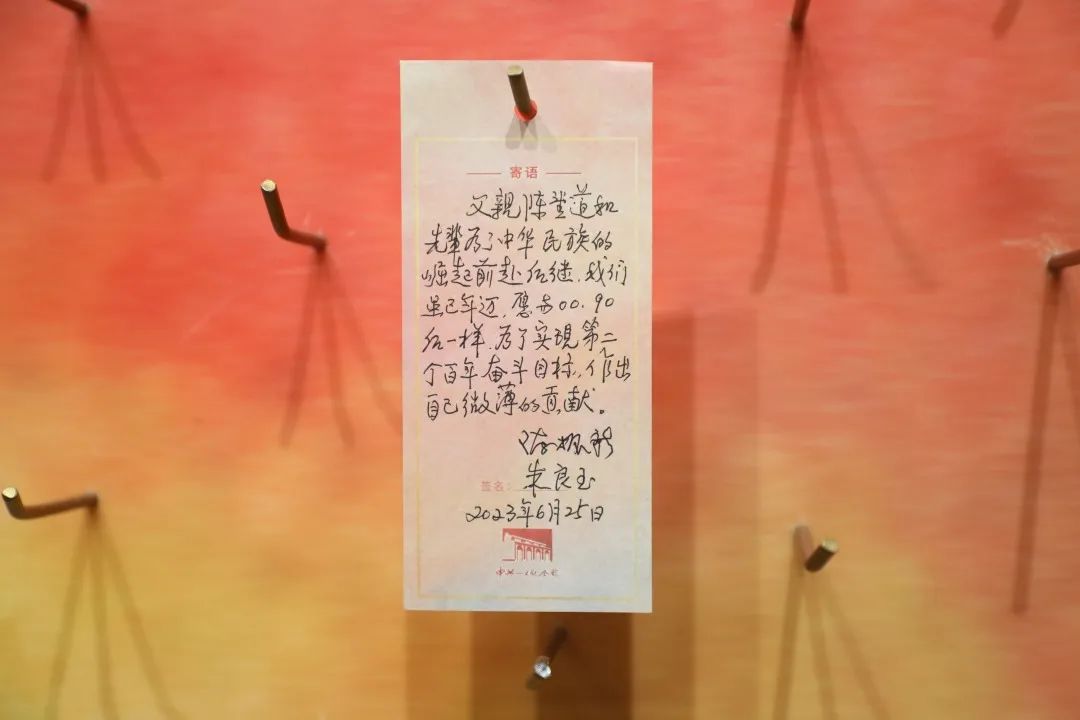 寄语
父親陈望道和
先辈为了中华民族的
崛起前赴后继.我们
虽已年迈,愿与00.90
后一样.为了实现第二
个百年奋斗目标,作出
自己微薄的贡献。
陈振新
签名:朱良玉
2023年6月25日